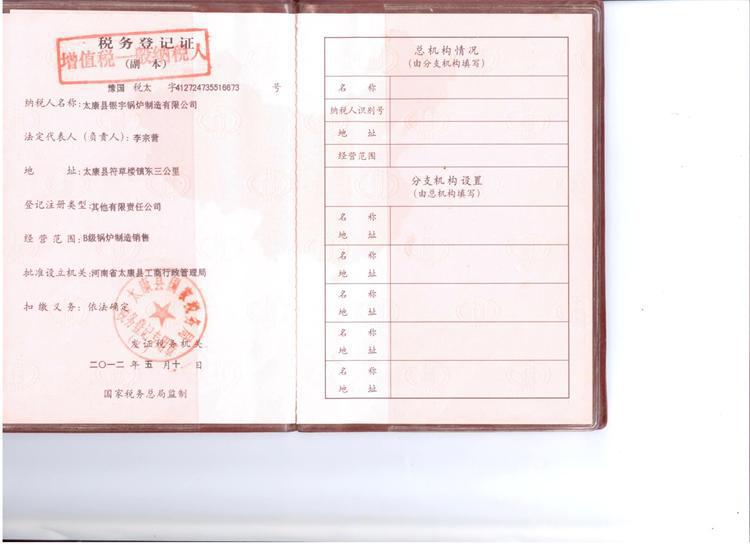 税务登记证
增值税一般纳税人
(副 本)
豫国 税太 字412724735516673 号
纳税人名称:太康县银宇锅炉制造有限公司
法定代表人(负责人):李宗普
地 址:太康县符草楼镇东三公里
登记注册类型:其他有限责任公司
经营范围:B级锅炉制造销售
批准设立机关:河南省太康县工商行政管理局
扣缴义务:依法确定
发证税务机关
二〇一二年五月十 日
国家税务总局监制
总机构情况
(由分支机构填写)
名 称
纳税人识别号
地 址
经营范围
分支机构设置
(由总机构填写)
名 称
地 址
名 称
地 址
名 称
地 址
名 称
地 址
名 称
地 址